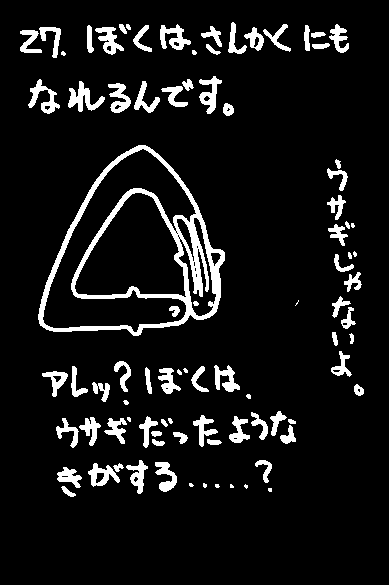 27. ぼくは、さんかくにも
なれるんです。
ウサギじゃないよ。
アレッ?ぼくは、
ウサギだったような
きがする.....?